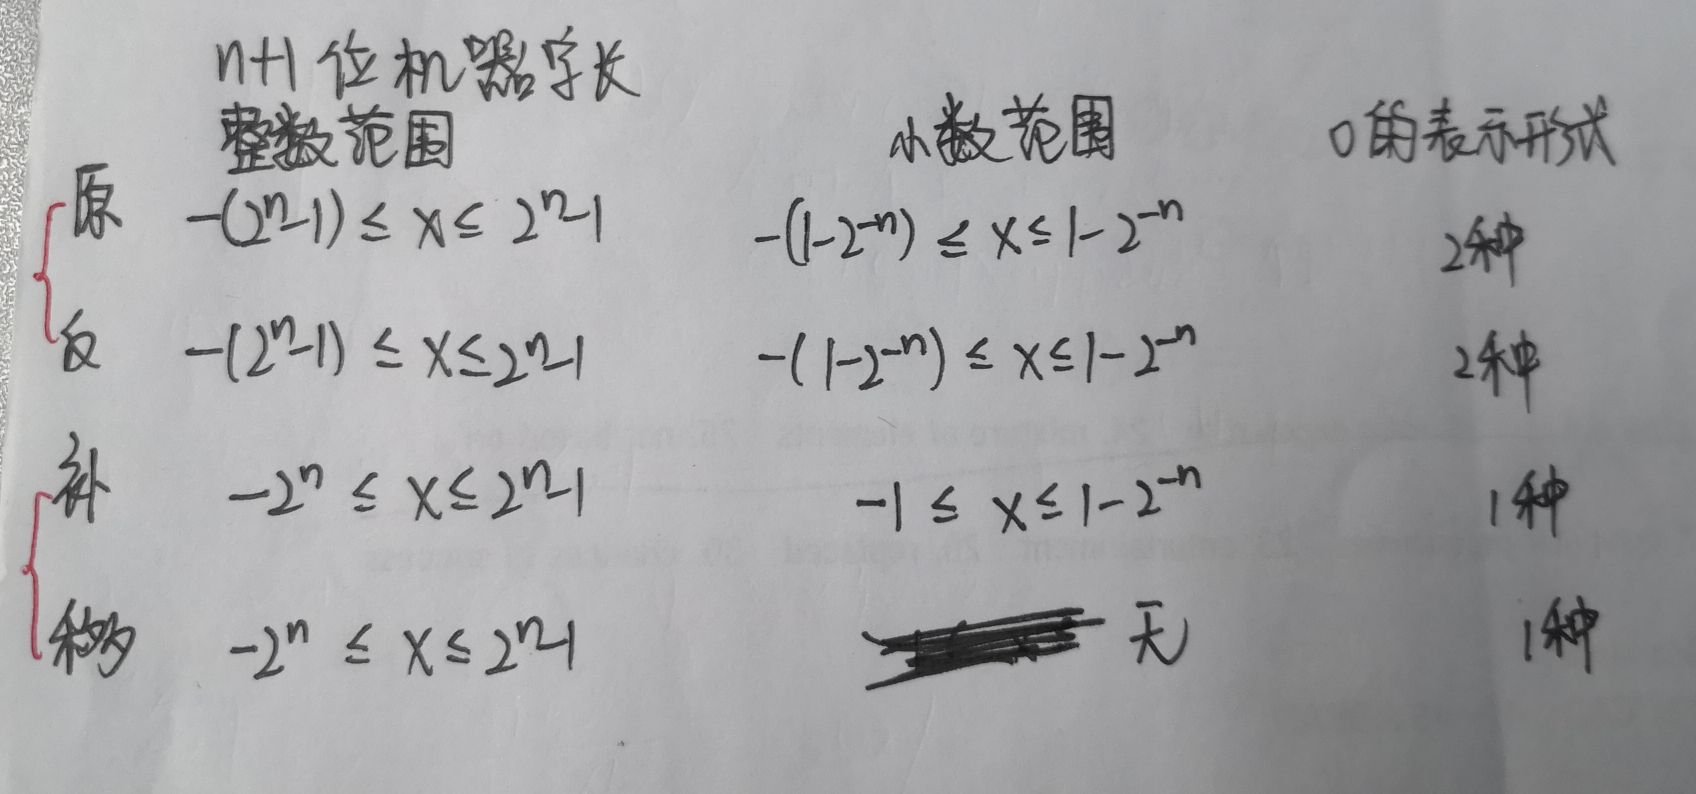 n+1位机器字长
整数范围 小数范围 0的表示形式
原 -(2ⁿ-1) ≤ x ≤ 2ⁿ-1 -(1-2⁻ⁿ) ≤ x ≤ 1-2⁻ⁿ 2种
反 -(2ⁿ-1) ≤ x ≤ 2ⁿ-1 -(1-2⁻ⁿ) ≤ x ≤ 1-2⁻ⁿ 2种
补 -2ⁿ ≤ x ≤ 2ⁿ-1 -1 ≤ x ≤ 1-2⁻ⁿ 1种
移 -2ⁿ ≤ x ≤ 2ⁿ-1 无 1种